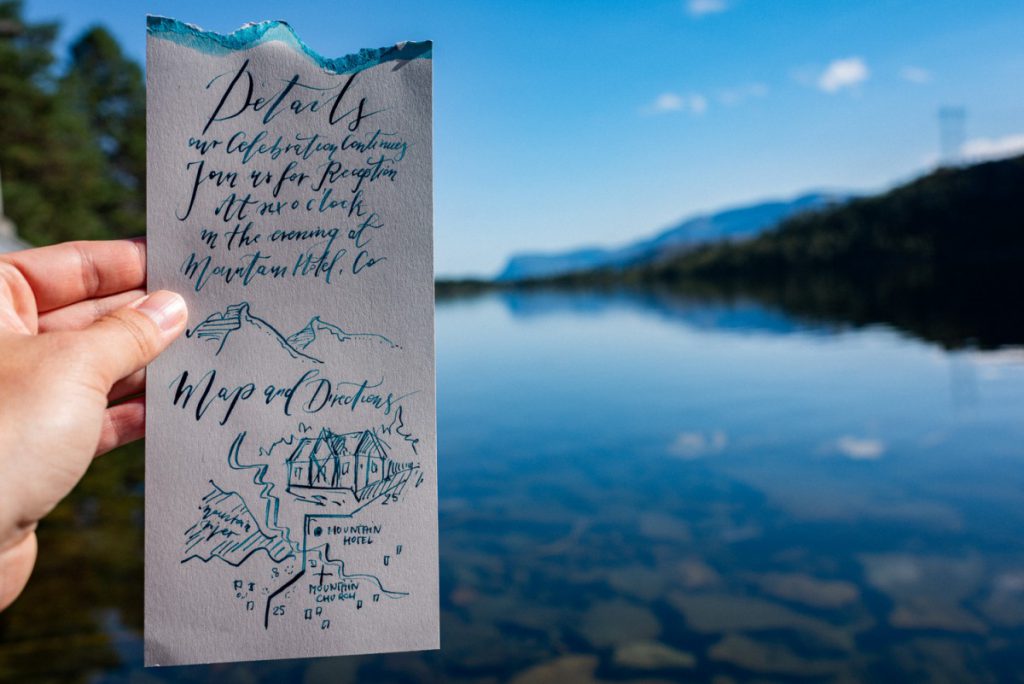 Details
our Celebration Continues
Join us for Reception
At six o'clock
in the evening at
Mountain Hotel, Co
Map and Directions
25
Mountain
River
MOUNTAIN
HOTEL
8
MOUNTAIN
CHURCH
25